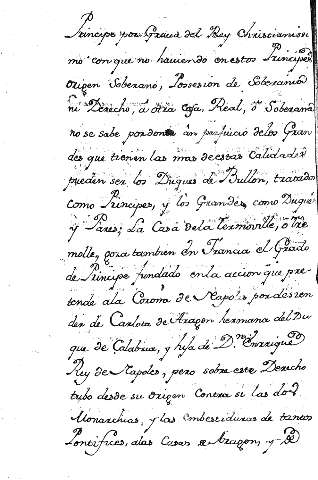 Principe por Gracia del Rey Christianisi
mo con que no haviendo en estos Principes
origen Soberano, Possesion de Soberania
ni Derecho, a otra Casa Real, ò Soberana
no se sabe por donde an perjuicio de los Gran
des que tienen las mas de estas Calidades
pueden ser los Duques de Bullon, tratados
como Principes, y los Grandes como Duques
y Pares; La Casa de la Termoville, ò Tre
molle, goza tambien en Francia el Grado
de Principe fundado en la accion que pre
tende a la Corona de Napoles por descen
der de Carlota de Aragon hermana del Du
que de Calabria, y hija de Dn. Enrrique
Rey de Napoles, pero sobre este Derecho
tubo desde su origen Contra si las dos
Monarchias, y las embestiduras de tantos
Pontifices, a las Casas de Aragon, y de